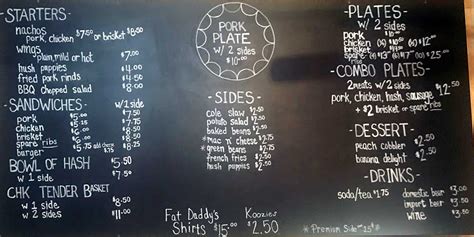 -STARTERS-
nachos $7.50
pork, chicken or brisket $8.50
wings
*plain, mild or hot $7.00
hush puppies $4.00
fried pork rinds $4.50
BBQ chopped salad $8.00
-SANDWICHES- w/ 1 side
pork $5.00 $7.50
chicken
brisket
spare ribs
burger add cheese
BOWL OF HASH $5.50
w/ 1 side $7.50
CHK TENDER BASKET
w/ 1 side $8.50
w/ 2 sides $11.00
PORK
PLATE
w/ 2 sides
$10.00
-SIDES-
cole slaw $2.50
potato salad $2.50
baked beans $2.50
*mac 'n' cheese $2.75
*green beans $2.75
french fries $2.50
hush puppies $2.50
Fat Daddy's
Shirts $15.00
Koozies
$2.50
-PLATES-
w/ 2 sides
pork
chicken
brisket
spare ribs
-COMBO PLATES-
2 meats w/ 2 sides
pork, chicken, hash, sausage
+ $2 brisket or spare ribs
-DESSERT-
peach cobbler $2.50
banana delight $2.50
-DRINKS-
soda/tea $1.75
domestic beer $3.00
import beer
wine
* Premium Side - 25¢ *